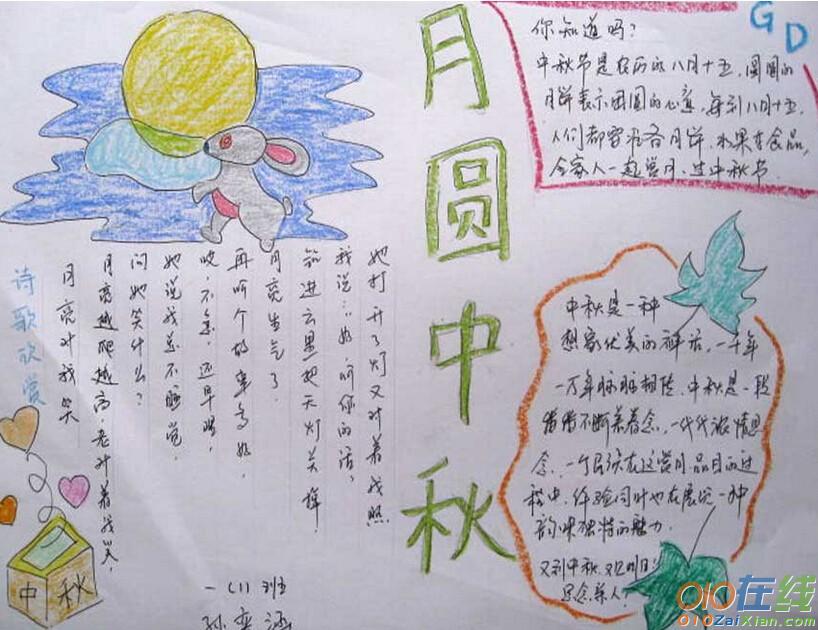 月圆中秋
G D
你知道吗?
中秋节是农历的八月十五,圆圆的
月饼表示团圆的心意,每到八月十五,
人们都要准备月饼、水果等食品,
全家人一起赏月、过中秋节.
诗歌欣赏
月亮对我笑
月亮越爬越高,老对着我笑,
问她笑什么?
她说我总不睡觉,
咳,不急,还早哩,
再听个故事多好,
月亮生气了.
钻进云里把天灯关掉.
我说:"好,听你的话,
她打开了灯又对着我照
中秋是一种
想象优美的神话,一千年
一万年脉脉相传.中秋是一段
念,一个民族在这赏月品月的过
程中,体验同时也在展现一种
韵味独特的魅力.
又到中秋,又见明月
思念亲人!
中 秋
一(1)班
孙奕涵
010在线
010ZaiXian.com